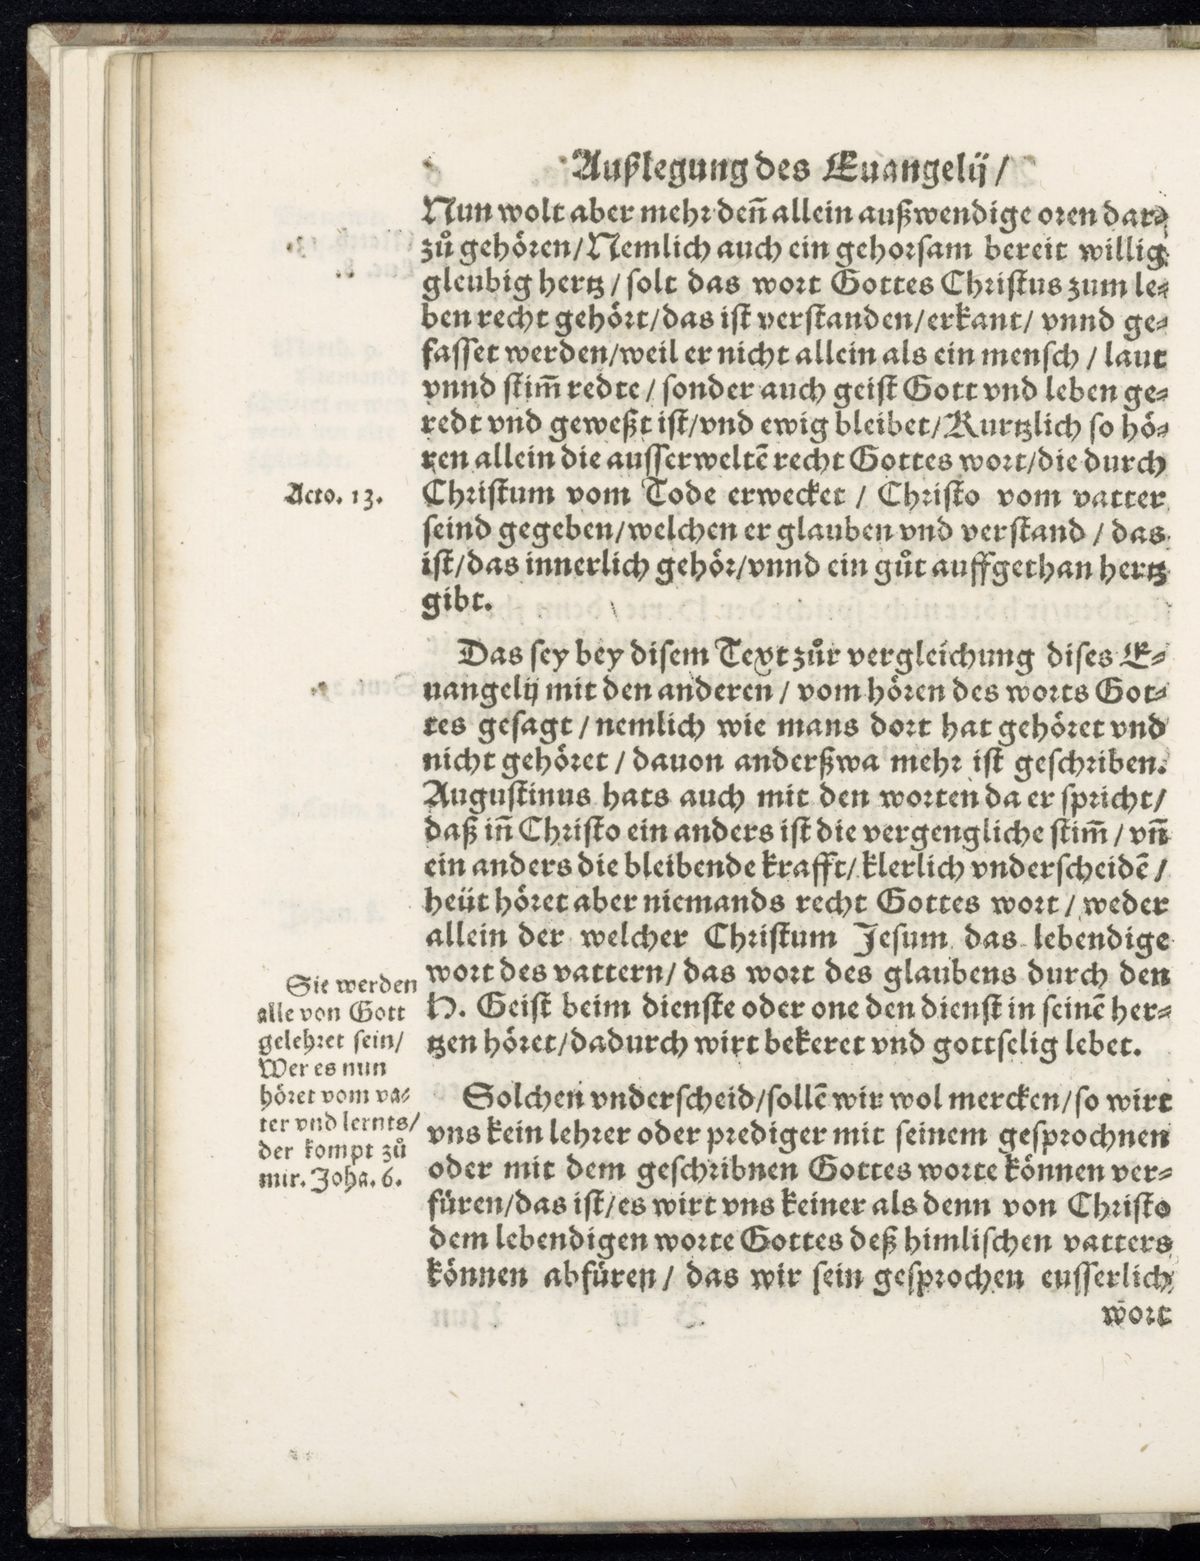 Außlegung des Euangelij /
Nun wolt aber mehr den̄ allein außwendige oren dar⸗
zů gehören / Nemlich auch ein gehorsam bereit willig
gleubig hertz / solt das wort Gottes Christus zum le⸗
ben recht gehört / das ist verstanden / erkant / vnnd ge⸗
fasset werden / weil er nicht allein als ein mensch / laut
vnnd stim̄ redte / sonder auch geist Gott vnd leben ge⸗
redt vnd geweßt ist / vnd ewig bleibet / Kurtzlich so hö⸗
ren allein die ausserweltē recht Gottes wort / die durch
Acto. 13.
Christum vom Tode erwecket / Christo vom vatter
seind gegeben / welchen er glauben vnd verstand / das
ist / das innerlich gehör / vnnd ein gůt auffgethan hertz
gibt.
Das sey bey disem Text zůr vergleichung dises E⸗
uangelij mit den anderen / vom hören des worts Got⸗
tes gesagt / nemlich wie mans dort hat gehöret vnd
nicht gehöret / dauon anderßwa mehr ist geschriben.
Augustinus hats auch mit den worten da er spricht /
daß in̄ Christo ein anders ist die vergengliche stim̄ / vn̄
ein anders die bleibende krafft / klerlich vnderscheidē /
heüt höret aber niemands recht Gottes wort / weder
allein der welcher Christum Jesum das lebendige
wort des vattern / das wort des glaubens durch den
H. Geist beim dienste oder one den dienst in seinē her⸗
tzen höret / dadurch wirt bekeret vnd gottselig lebet.
Sie werden
alle von Gott
gelehret sein /
Wer es nun
höret vom va⸗
ter vnd lernts /
der kompt zů
mir. Joha. 6.
Solchen vnderscheid / sollē wir wol mercken / so wirt
vns kein lehrer oder prediger mit seinem gesprochnen
oder mit dem geschribnen Gottes worte können ver⸗
füren / das ist / es wirt vns keiner als denn von Christo
dem lebendigen worte Gottes deß himlischen vatters
können abfüren / das wir sein gesprochen eusserlich
wort